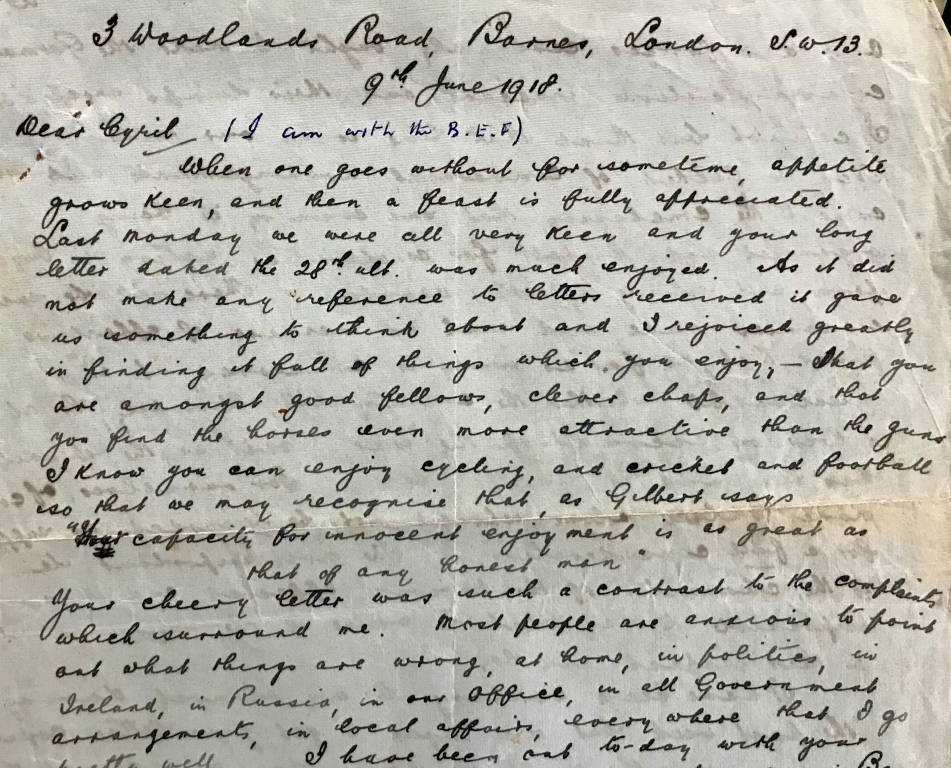 3 Woodlands Road, Barnes, London. S.W.13.
9th June 1918.
Dear Cyril (I am with the B.E.F)
When one goes without for sometime, appetite
grows keen, and then a feast is fully appreciated.
Last Monday we were all very keen and your long
letter dated the 28th ult. was much enjoyed. As it did
not make any reference to letters received it gave
us something to think about and I rejoiced greatly
in finding it full of things which you enjoy, – that you
are amongst good fellows, clever chaps, and that
you find the horses even more attractive than the guns
I know you can enjoy cycling, and cricket and football
so that we may recognise that, as Gilbert says
"Your capacity for innocent enjoyment is as great as
that of any honest man"
Your cheery letter was such a contrast to the complaints
which surround me. Most people are anxious to point
out what things are wrong, at home, in politics, in
Ireland, in Russia, in our Office, in all Government
arrangements, in local affairs, every where that I go
pretty well. I have been out to-day with your